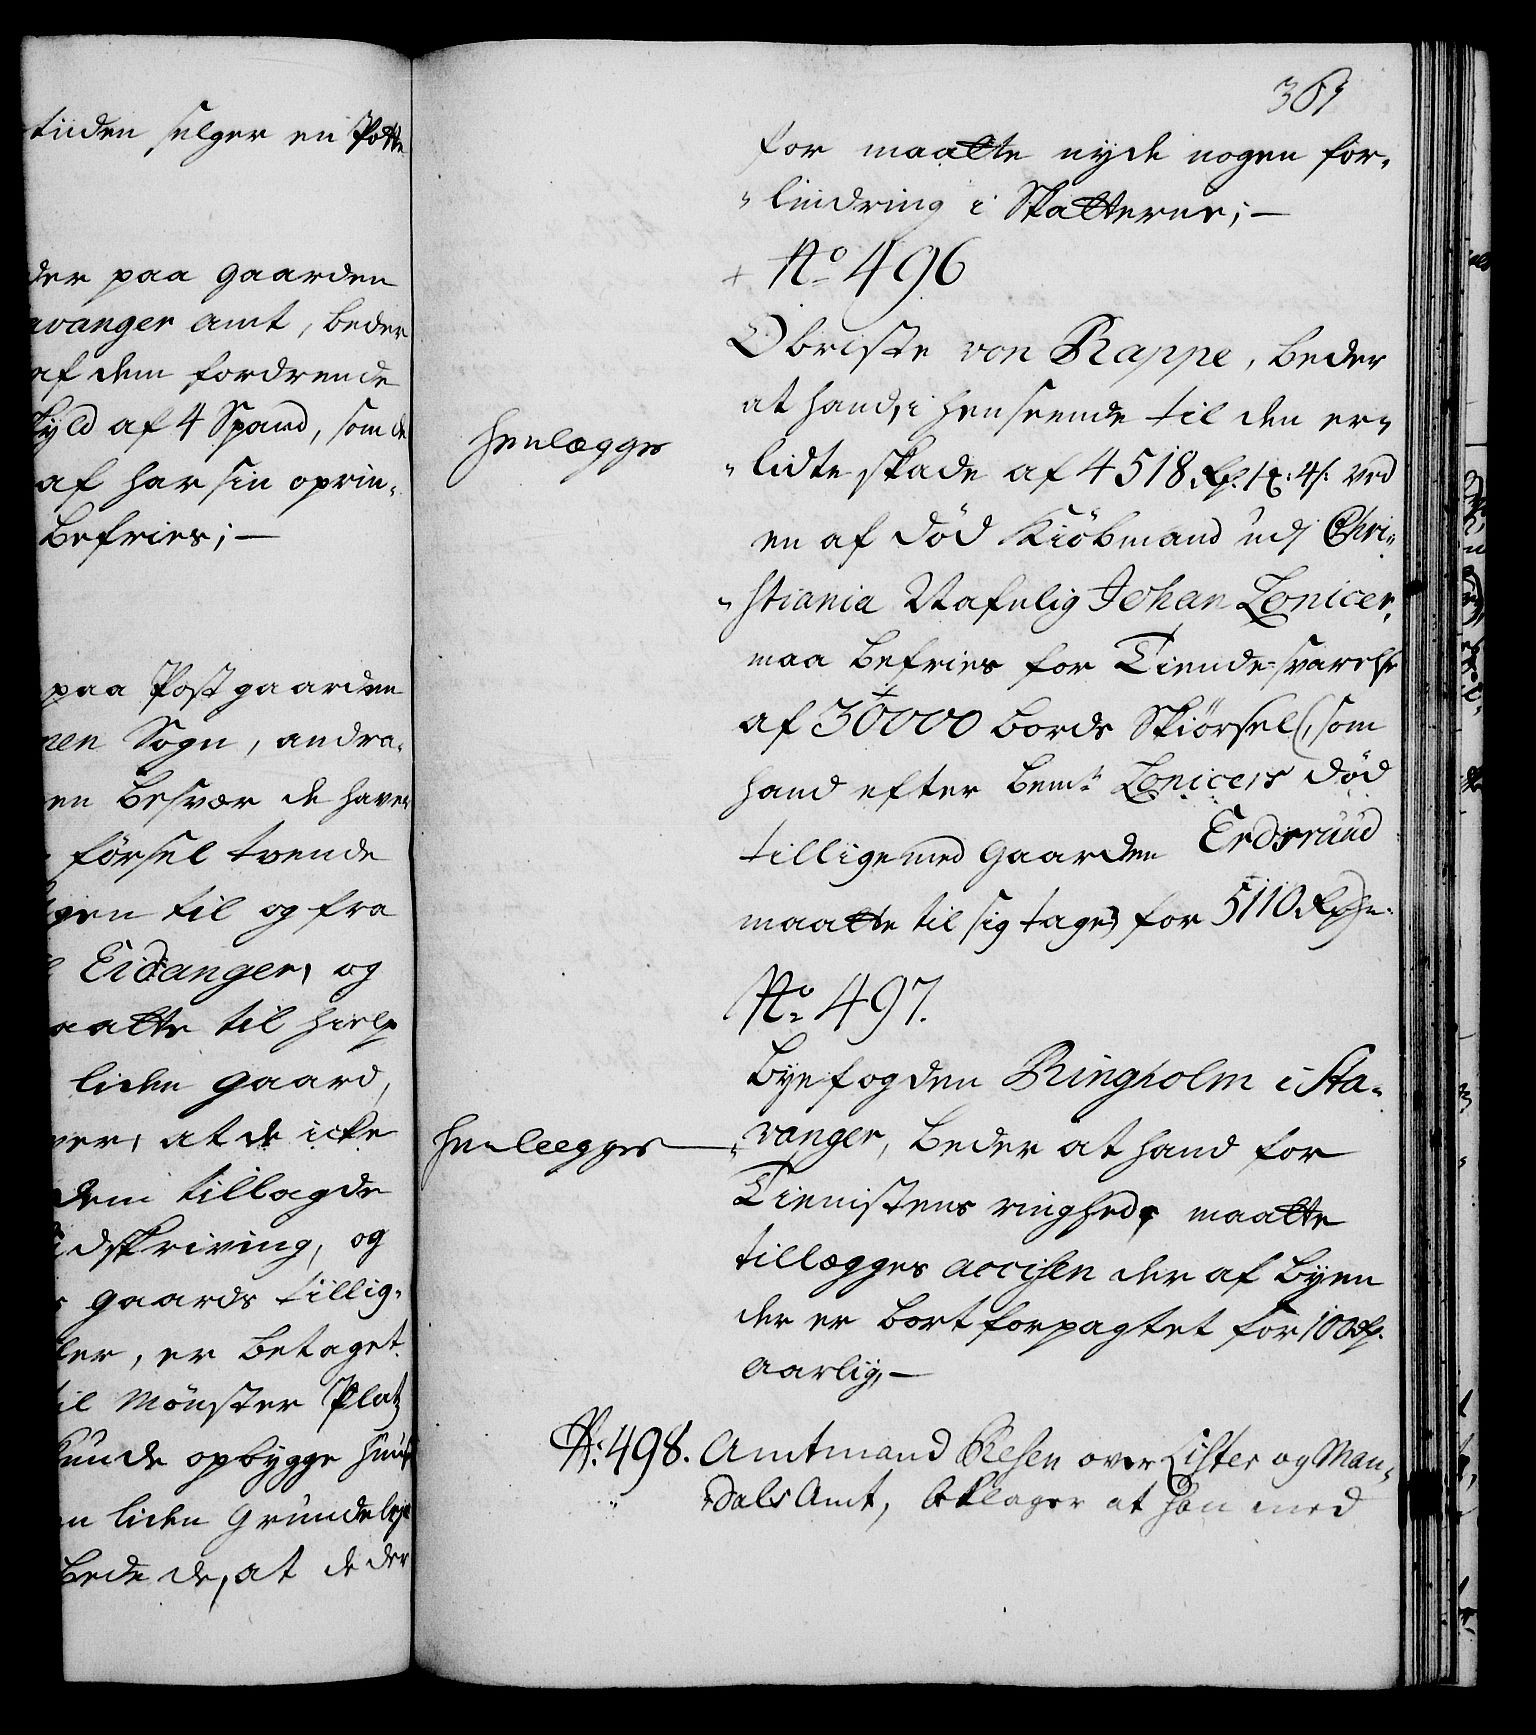 tiiden selger en Potte
der paa gaarden
avanger amt, beder
af dem fordrende
skyld af 4 Spand, som de
af har sin oprin-
befries; —
paa Postgaarden
nen Sogn, andra-
en besvær de haver
försel tvende
til og fra
Eidanger, og
maatte til hielp
liden gaard,
at de icke
dem tillagde
udskriving, og
gaards tillig-
er betaget.
til Mönster Platz
kunde opbygge huus
en liden Grund
bede de, at de der
for maatte nyde nogen for-
lindring i Skatterne; —
+ No 496
Obriste von Rappe, beder
at hand, i henseende til den er-
Henlægges
lidte skade af 4518 Rd. 1 ℳ: 4 s: ved
en af död Kiöbmand udj Chri-
stiania Nafnlig Johan Lonicer,
maa befries for Tiende-svarelse
af 30000 bords Skiörsel(, som
hand efter bemte Lonicers död
tilligemed Gaarden Erdsruud
maatte til sig tage) for 5110 Rd.
No. 497.
Byefogden Ringholm i Sta-
Henlægges — vanger, beder at hand for
Tienistens ringhed, maatte
tillægges accisen der af byen
der er bortforpagtet for 100 Rd.
aarlig, —
No: 498. Amtmand Resen over Lister og Man-
dals Amt, beklager at han med